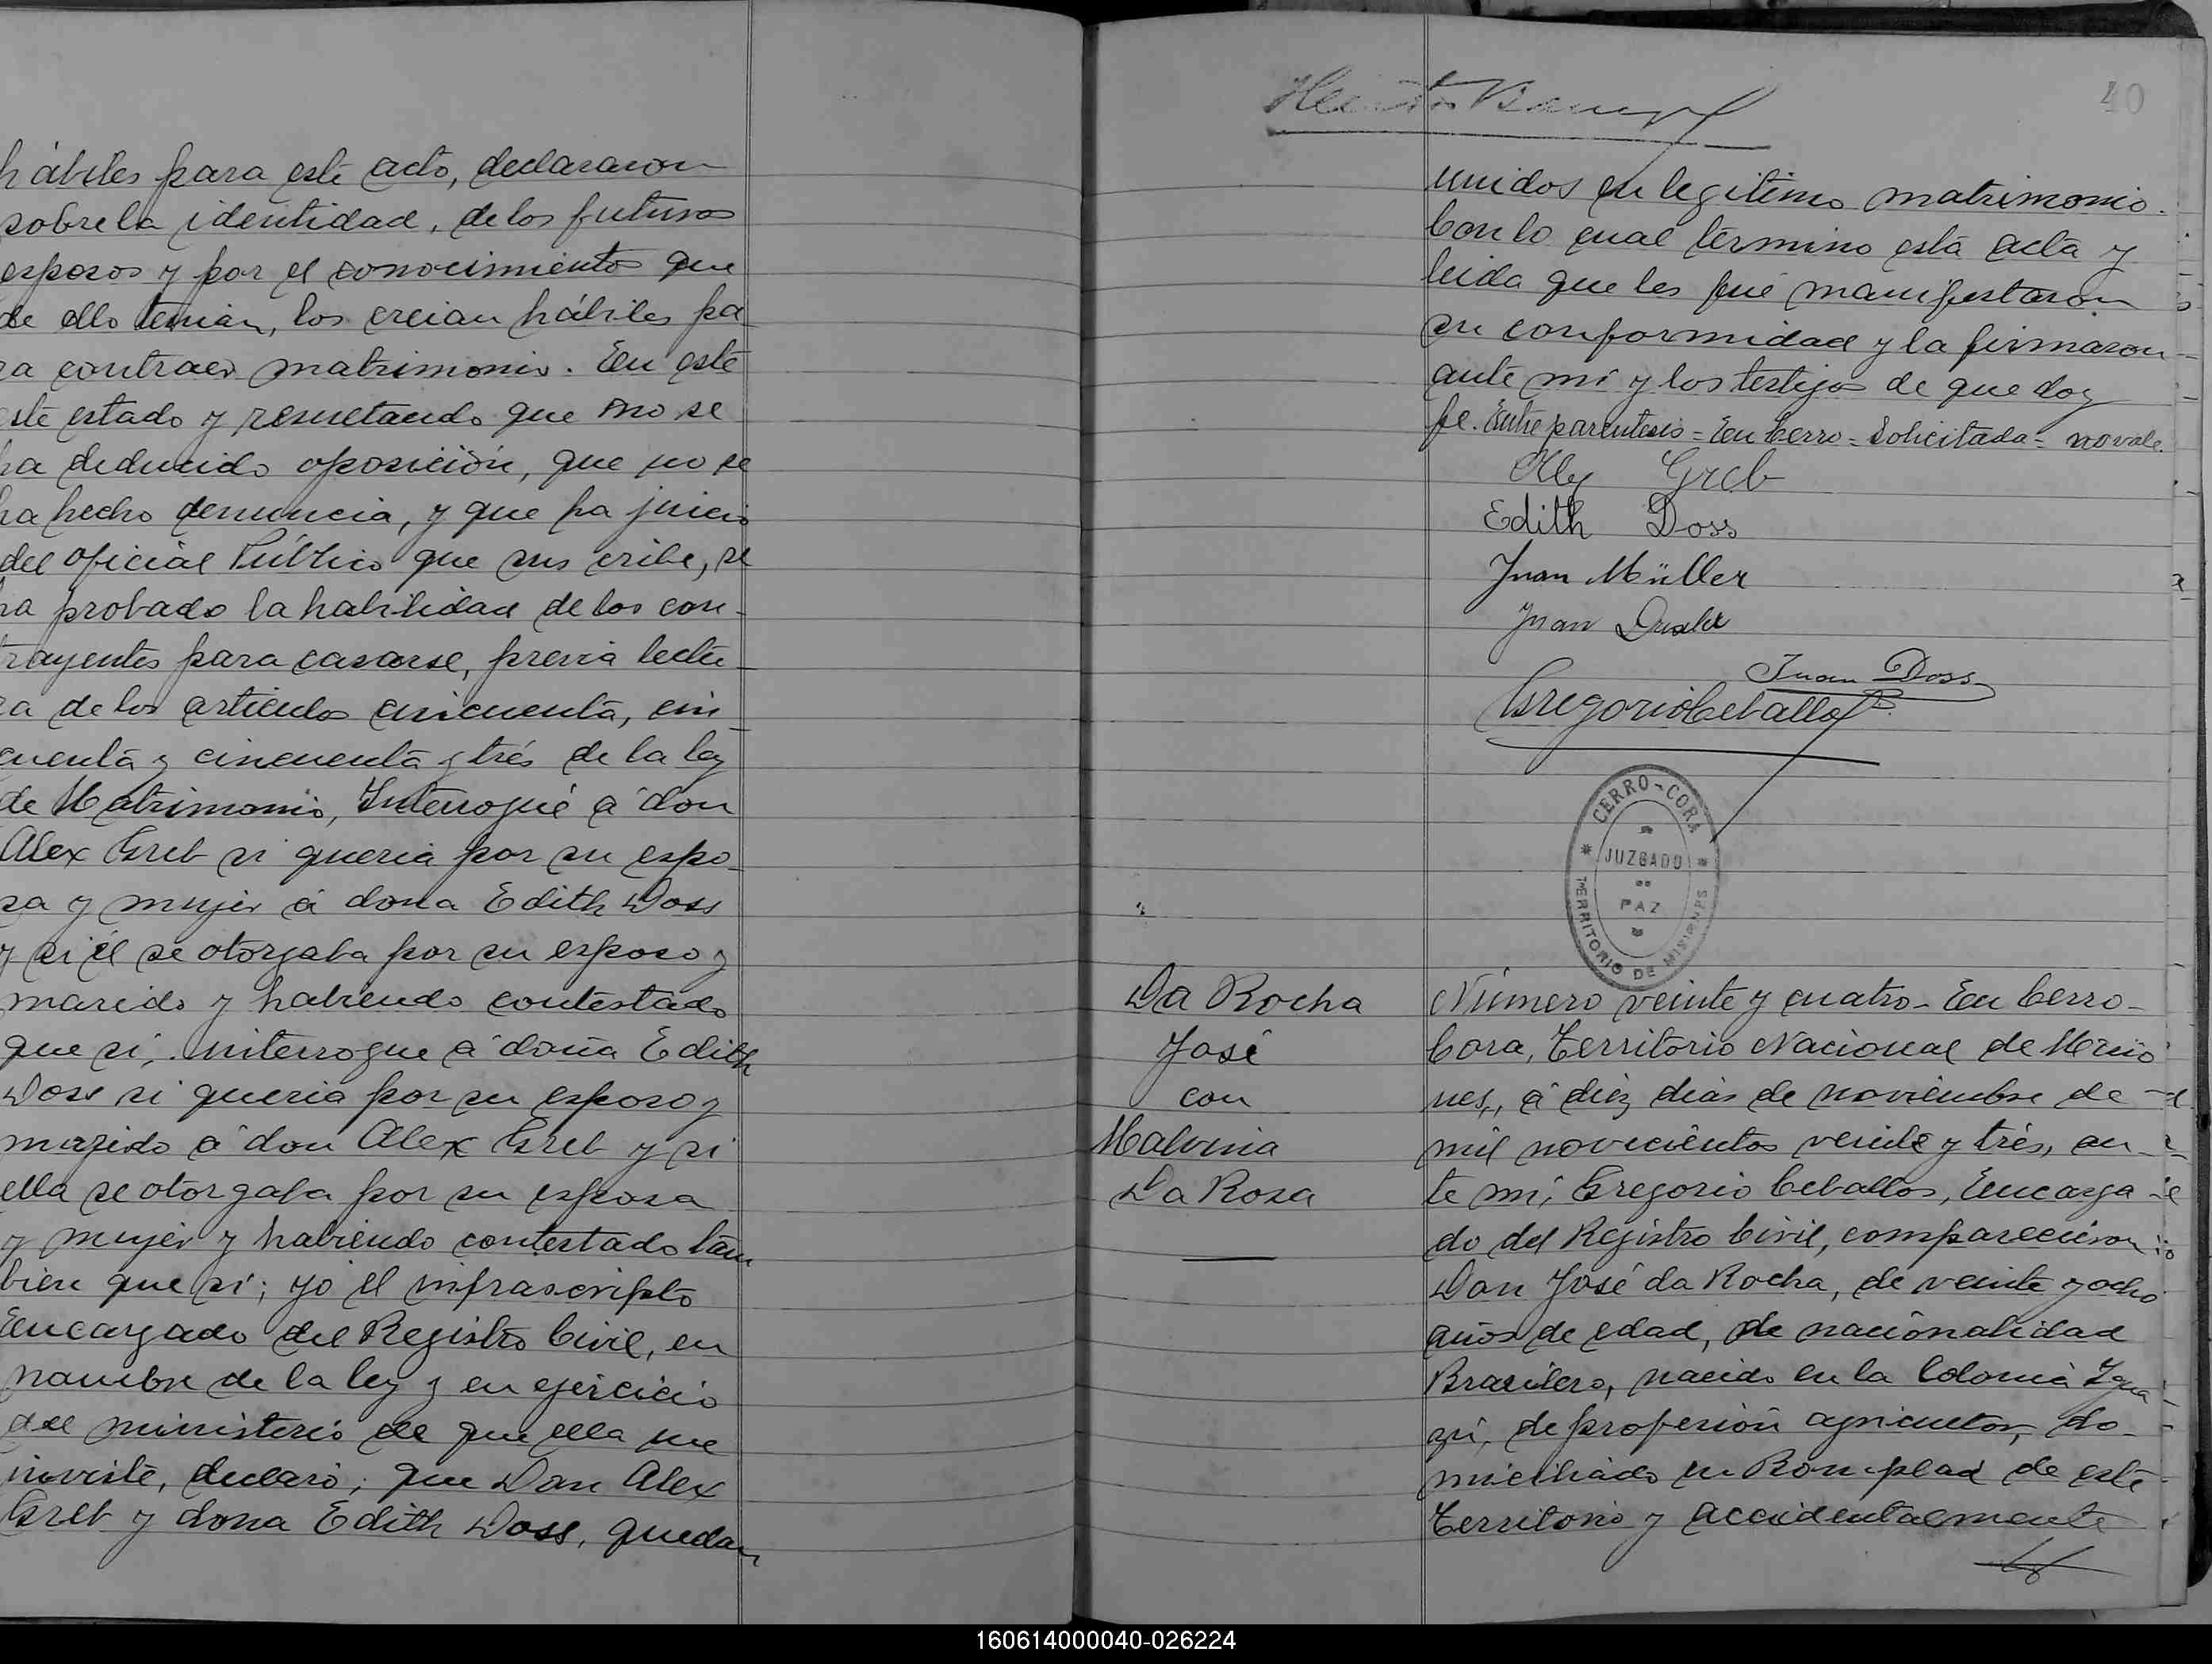 hábiles para este acto, declararon
sobre la identidad, de los futuros
esposos y por el conocimiento que
de ello tenian, los creian hábiles pa
ra contraer matrimonio. En este
este estado y resultando que no se
ha deducido oposición, que no se
ha hecho denuncia, y que ha juicio
del oficial Público que sus cribe, se
ha probado la habilidad de los con-
trayentes para casarse, previa lectu-
ra de los articulos cincuenta, cin
cuenta y cincuenta y trés de la ley
de Matrimonio, Interrogué á don
Alex Greb si queria por su espo-
sa y mujer á dona Edith Doss
y si él se otorgaba por su esposo y
marido y habiendo contestado
que si, interrogue á doña Edith
Doss si queria por su esposo y
marido á don Alex Greb y si
ella se otorgaba por su esposa
y mujer y habiendo contestado tam
bien que si; yo el infrascripto
Encargado del Registro Civil, en
nombre de la ley y en ejercicio
del ministerio de que ella me
inviste, declaro; que Don Alex
Greb y dona Edith Doss, quedan
40
unidos en legitimo matrimonio.
Con lo cual término está acta y
leida que les fué manifestaron
su conformidad y la firmaron
ante mí y los testigos de que doy
fe. Entre parentesis = En Cerro = Solicitada = no vale.
Greb
Edith Doss
Juan Müller
Juan
Juan Doss
Gregorio Ceballos
CERRO-CORA
JUZGADO
DE
PAZ
TERRITORIO DE MISIONES
Da Rocha
José
con
Malvina
Da Rosa
Número veinte y cuatro - En Cerro-
Cora, Territorio Nacional de Misio
nes, á diéz dias de noviembre de
mil novecientos veinte y trés, an-
te mí, Gregorio Ceballos, Encarga
do del Registro Civil, comparecieron
Don José da Rocha, de veinte y ocho
años de edad, de nacionalidad
Brasilero, nacido en la Colonia Igua
zú, de profesión agricultor, do-
miciliado en Bonpland de este
Territorio y accidentalmente
160614000040-026224